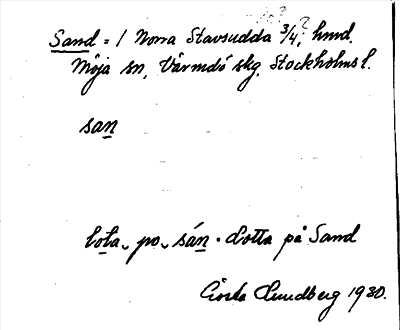 Sand = 1 Norra Stavsudda 3/4, hmd.
Möja sn, Värmdö skg. Stockholms l.
san
lota, po, sán. Lotta på Sand
Gösta Lundberg 1930.